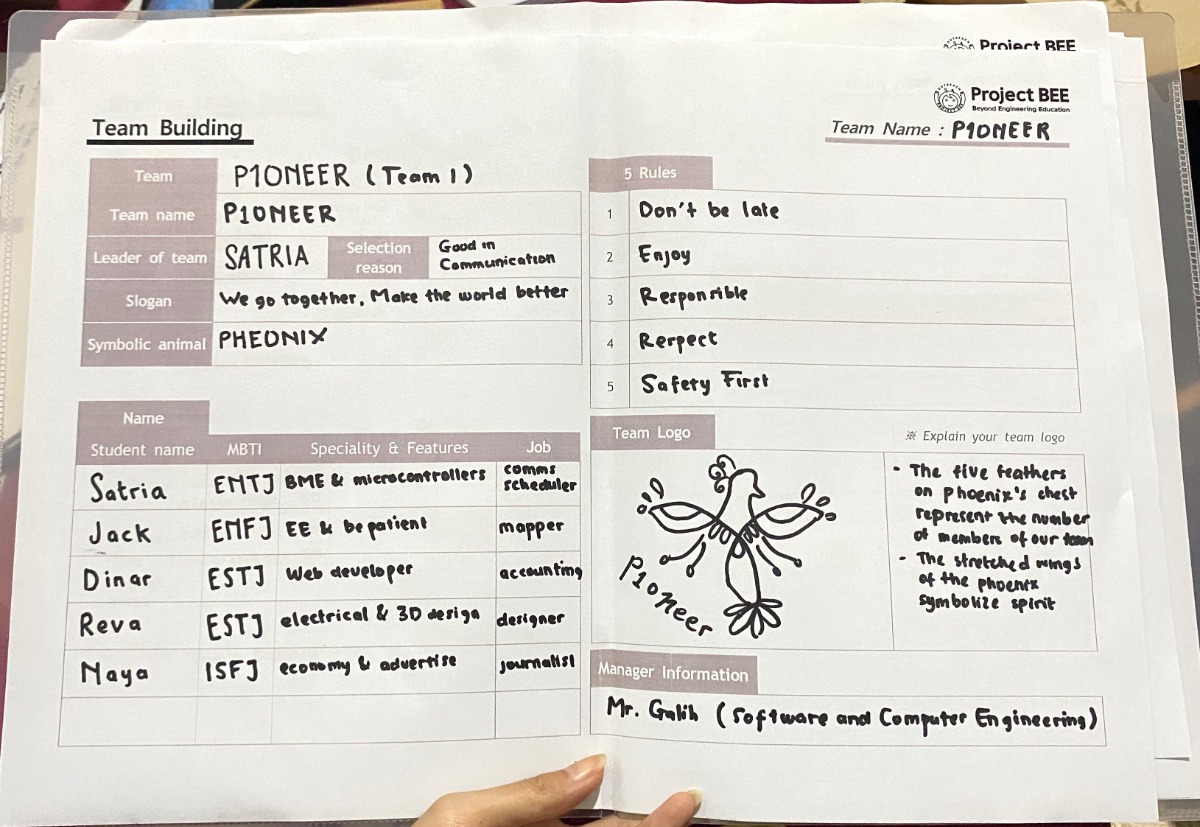 Project BEE
Project BEE
Beyond Engineering Education
Team Building
Team Name : P1ONEER
Team P1ONEER (Team 1)
Team name P1ONEER
Leader of team SATRIA Selection reason Good in Communication
Slogan We go together, Make the world better
Symbolic animal PHEONIX
5 Rules
1 Don't be late
2 Enjoy
3 Responsible
4 Rerpect
5 Safety First
Name
Student name MBTI Speciality & Features Job
Satria ENTJ BME & microcontrollers comms scheduler
Jack ENFJ EE & be patient mapper
Dinar ESTJ Web developer accounting
Reva ESTJ electrical & 3D design designer
Naya ISFJ economy & advertise journalist
Team Logo
※ Explain your team logo
P1oneer
• The five feathers
on phoenix's chest
represent the number
of members of our team
• The stretched wings
of the phoenix
symbolize spirit
Manager Information
Mr. Galih (Software and Computer Engineering)